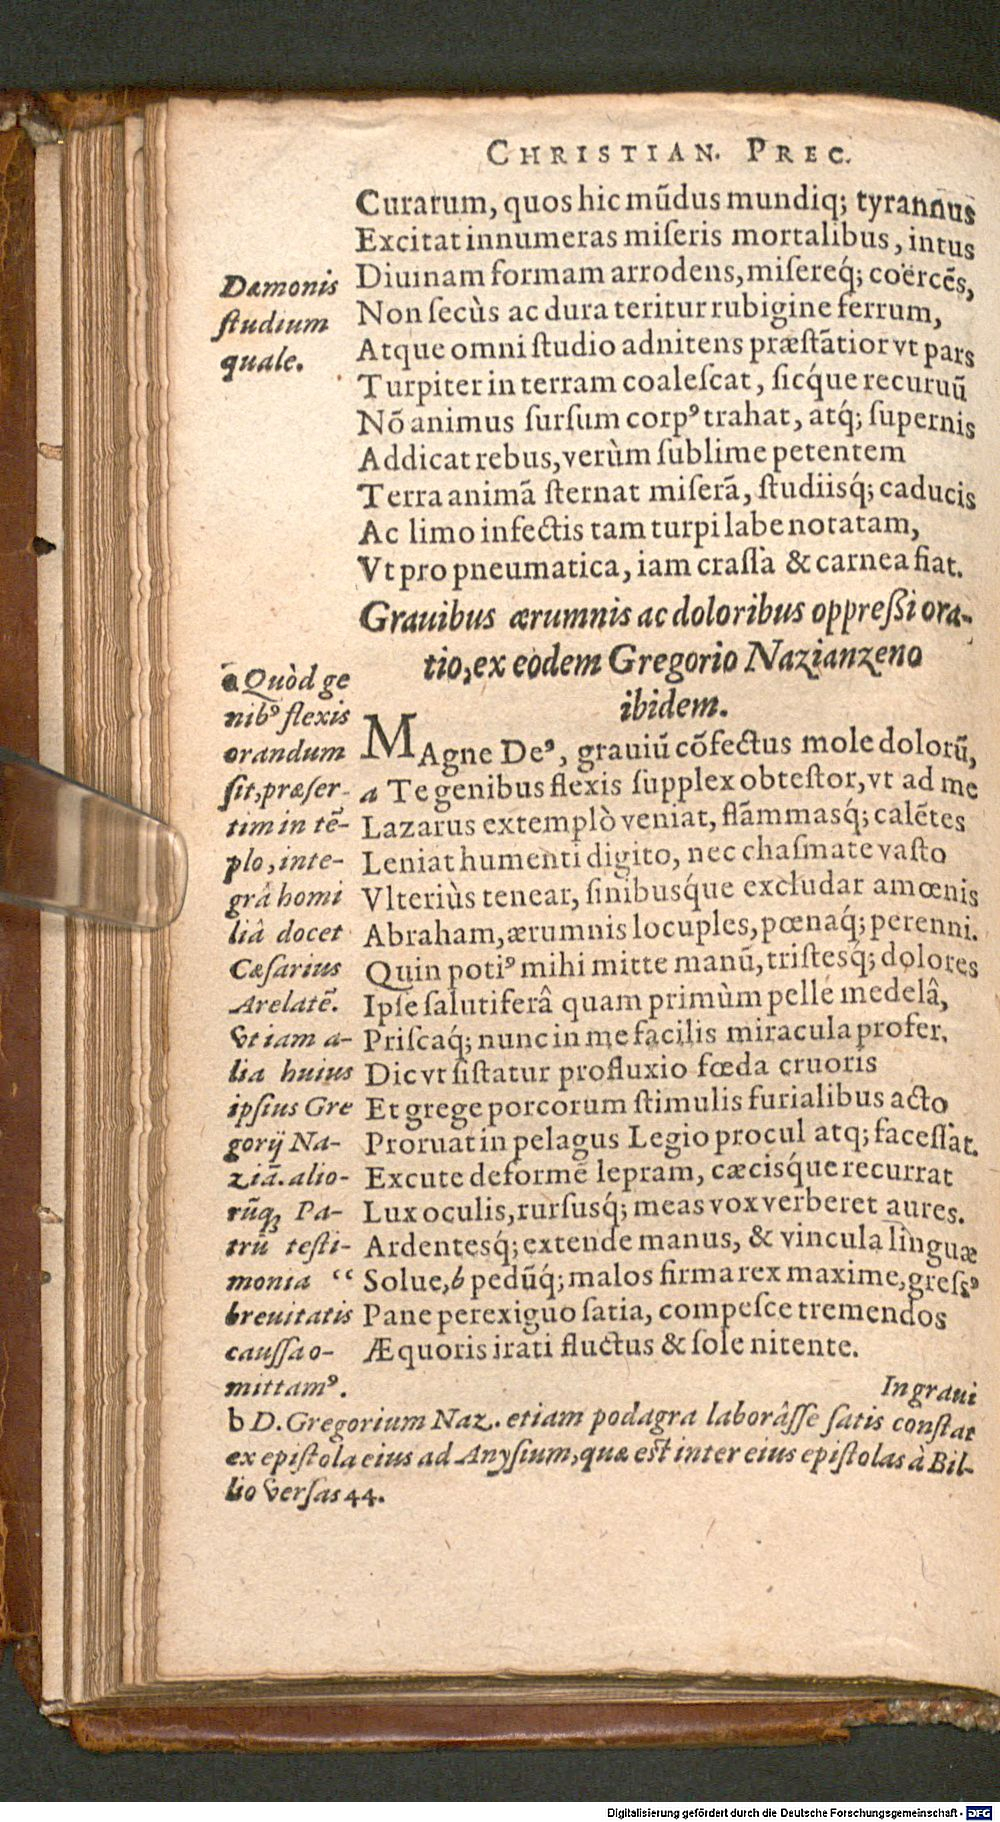 CHRISTIAN. PREC.
Curarum, quos hic mũdus mundiq; tyrannus
Excitat innumeras miſeris mortalibus, intus
Diuinam formam arrodens, miſereq́; coërcẽs,
Non ſecùs ac dura teritur rubigine ferrum,
Atque omni ſtudio adnitens præſtãtior vt pars
Turpiter in terram coaleſcat, ſicq́ue recuruũ
Nõ animus ſurſum corpꝰ trahat, atq́; ſupernis
Addicat rebus, verùm ſublime petentem
Terra animã ſternat miſerã, ſtudiisq́; caducis
Ac limo infectis tam turpi labe notatam,
Vt pro pneumatica, iam craſſa & carnea fiat.
Dæmonis
ſtudium
quale.
Grauibus ærumnis ac doloribus oppreßi ora-
tio, ex eodem Gregorio Nazianzeno
ibidem.
MAgne Deꝰ, grauiũ cõfectus mole dolorũ,
a Te genibus flexis ſupplex obteſtor, vt ad me
Lazarus extemplò veniat, flãmmasq́; calẽtes
Leniat humenti digito, nec chaſmate vaſto
Vlteriùs tenear, ſinibusq́ue excludar amœnis
Abraham, ærumnis locuples, pœnaq́; perenni.
Quin potiꝰ mihi mitte manũ, triſtesq́; dolores
Ipſe ſalutiferâ quam primùm pelle medelâ,
Priſcaq́; nunc in me facilis miracula profer.
Dic vt ſiſtatur profluxio fœda cruoris
Et grege porcorum ſtimulis furialibus acto
Proruat in pelagus Legio procul atq; faceſſat.
Excute deformẽ lepram, cæcisq́ue recurrat
Lux oculis, rurſusq́; meas vox verberet aures.
Ardentesq́; extende manus, & vincula linguæ
Solue, b pedũq́; malos firma rex maxime, greſſꝰ
Pane perexiguo ſatia, compeſce tremendos
Æquoris irati fluctus & ſole nitente.
Ingraui
a Quòd ge
nibꝰ flexis
orandum
ſit, præſer-
tim in tẽ-
plo, inte-
grâ homi
liâ docet
Cæſarius
Arelatẽ.
vt iam a-
lia huius
ipſius Gre
gorij Na-
ziã. alio-
rũq́; Pa-
trũ teſti-
monia “
breuitatis
cauſſa o-
mittamꝰ.
b D. Gregorium Naz. etiam podagra laborâſſe ſatis conſtat
ex epiſtola eius ad Anyſium, quæ eſt inter eius epiſtolas à Bil-
lio verſas 44.
Digitalisierung gefördert durch die Deutsche Forschungsgemeinschaft - DFG